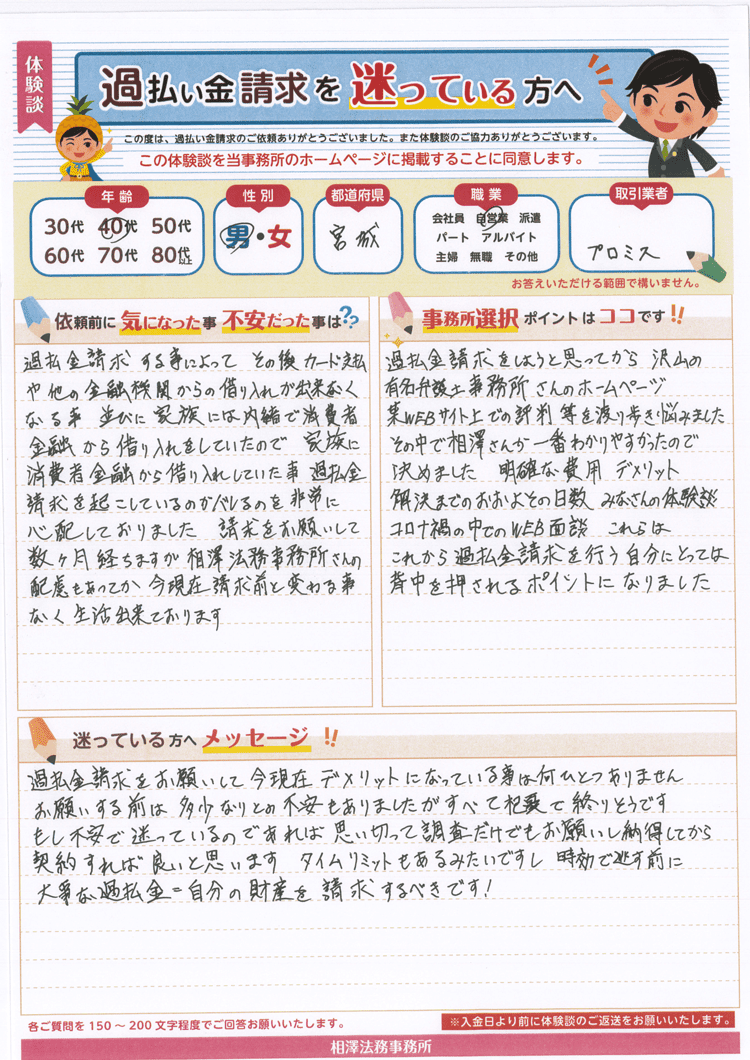 体験談
過払い金請求を迷っている方へ
この度は、過払い金請求のご依頼ありがとうございました。また体験談のご協力ありがとうございます。
この体験談を当事務所のホームページに掲載することに同意します。
年齢 性別 都道府県 職業 取引業者
30代 40代 50代
60代 70代 80代以上
男・女
宮城
会社員 自営業 派遣
パート アルバイト
主婦 無職 その他
プロミス
お答えいただける範囲で構いません。
依頼前に気になった事 不安だった事は??
過払金請求する事によって その後カード支払
や他の金融機関からの借り入れが出来なく
なる事 並びに家族には内緒で消費者
金融から借り入れをしていたので 家族に
消費者金融から借り入れしていた事 過払金
請求を起こしているのがバレるのを非常に
心配しておりました 請求をお願いして
数ヶ月経ちますが相澤法務事務所さんの
配慮もあってか今現在請求前と変わる事
なく生活出来ております
事務所選択ポイントはココです!!
過払金請求をしようと思ってから 沢山の
有名弁護士事務所さんのホームページ
某WEBサイト上での評判等を渡り歩き悩みました
その中で相澤さんが一番わかりやすかったので
決めました 明確な費用 デメリット
解決までのおおよその日数 みなさんの体験談
コロナ禍の中でのWEB面談 これらは
これから過払金請求を行う自分にとっては
背中を押されるポイントになりました
迷っている方へメッセージ!!
過払金請求をお願いして今現在デメリットになっている事は何ひとつありません
お願いする前は多少なりとの不安もありましたがすべて杞憂で終りそうです
もし不安で迷っているのであれば思い切って調査だけでもお願いし納得してから
契約すれば良いと思います タイムリミットもあるみたいですし 時効で逃す前に
大事な過払金=自分の財産を請求するべきです!
各ご質問を150〜200文字程度でご回答お願いいたします。
※入金日より前に体験談のご返送をお願いいたします。
相澤法務事務所